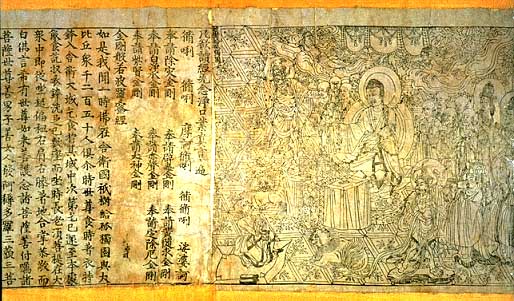 凡欲讀經先念淨口業真言一遍
脩唎 脩唎 摩訶脩唎 脩脩唎 娑婆訶
奉請除灾金剛 奉請辟毒金剛 奉請黃隨求金剛
奉請白淨水金剛 奉請赤聲金剛 奉請定除厄金剛
奉請紫賢金剛 奉請大神金剛
金剛般若波羅蜜經
如是我聞一時佛在舍衛國祇樹給孤獨園與大
比丘眾千二百五十人俱尒時世尊食時著衣持
鉢入舍衛大城乞食於其城中次第乞已還至本處
飯食訖收衣鉢洗足已敷座而坐時長老須菩提在大
眾中即從座起偏袒右肩右膝著地合掌恭敬而
白佛言希有世尊如來善護念諸菩薩善付囑諸
菩薩世尊善男子善女人發阿耨多羅三藐三菩